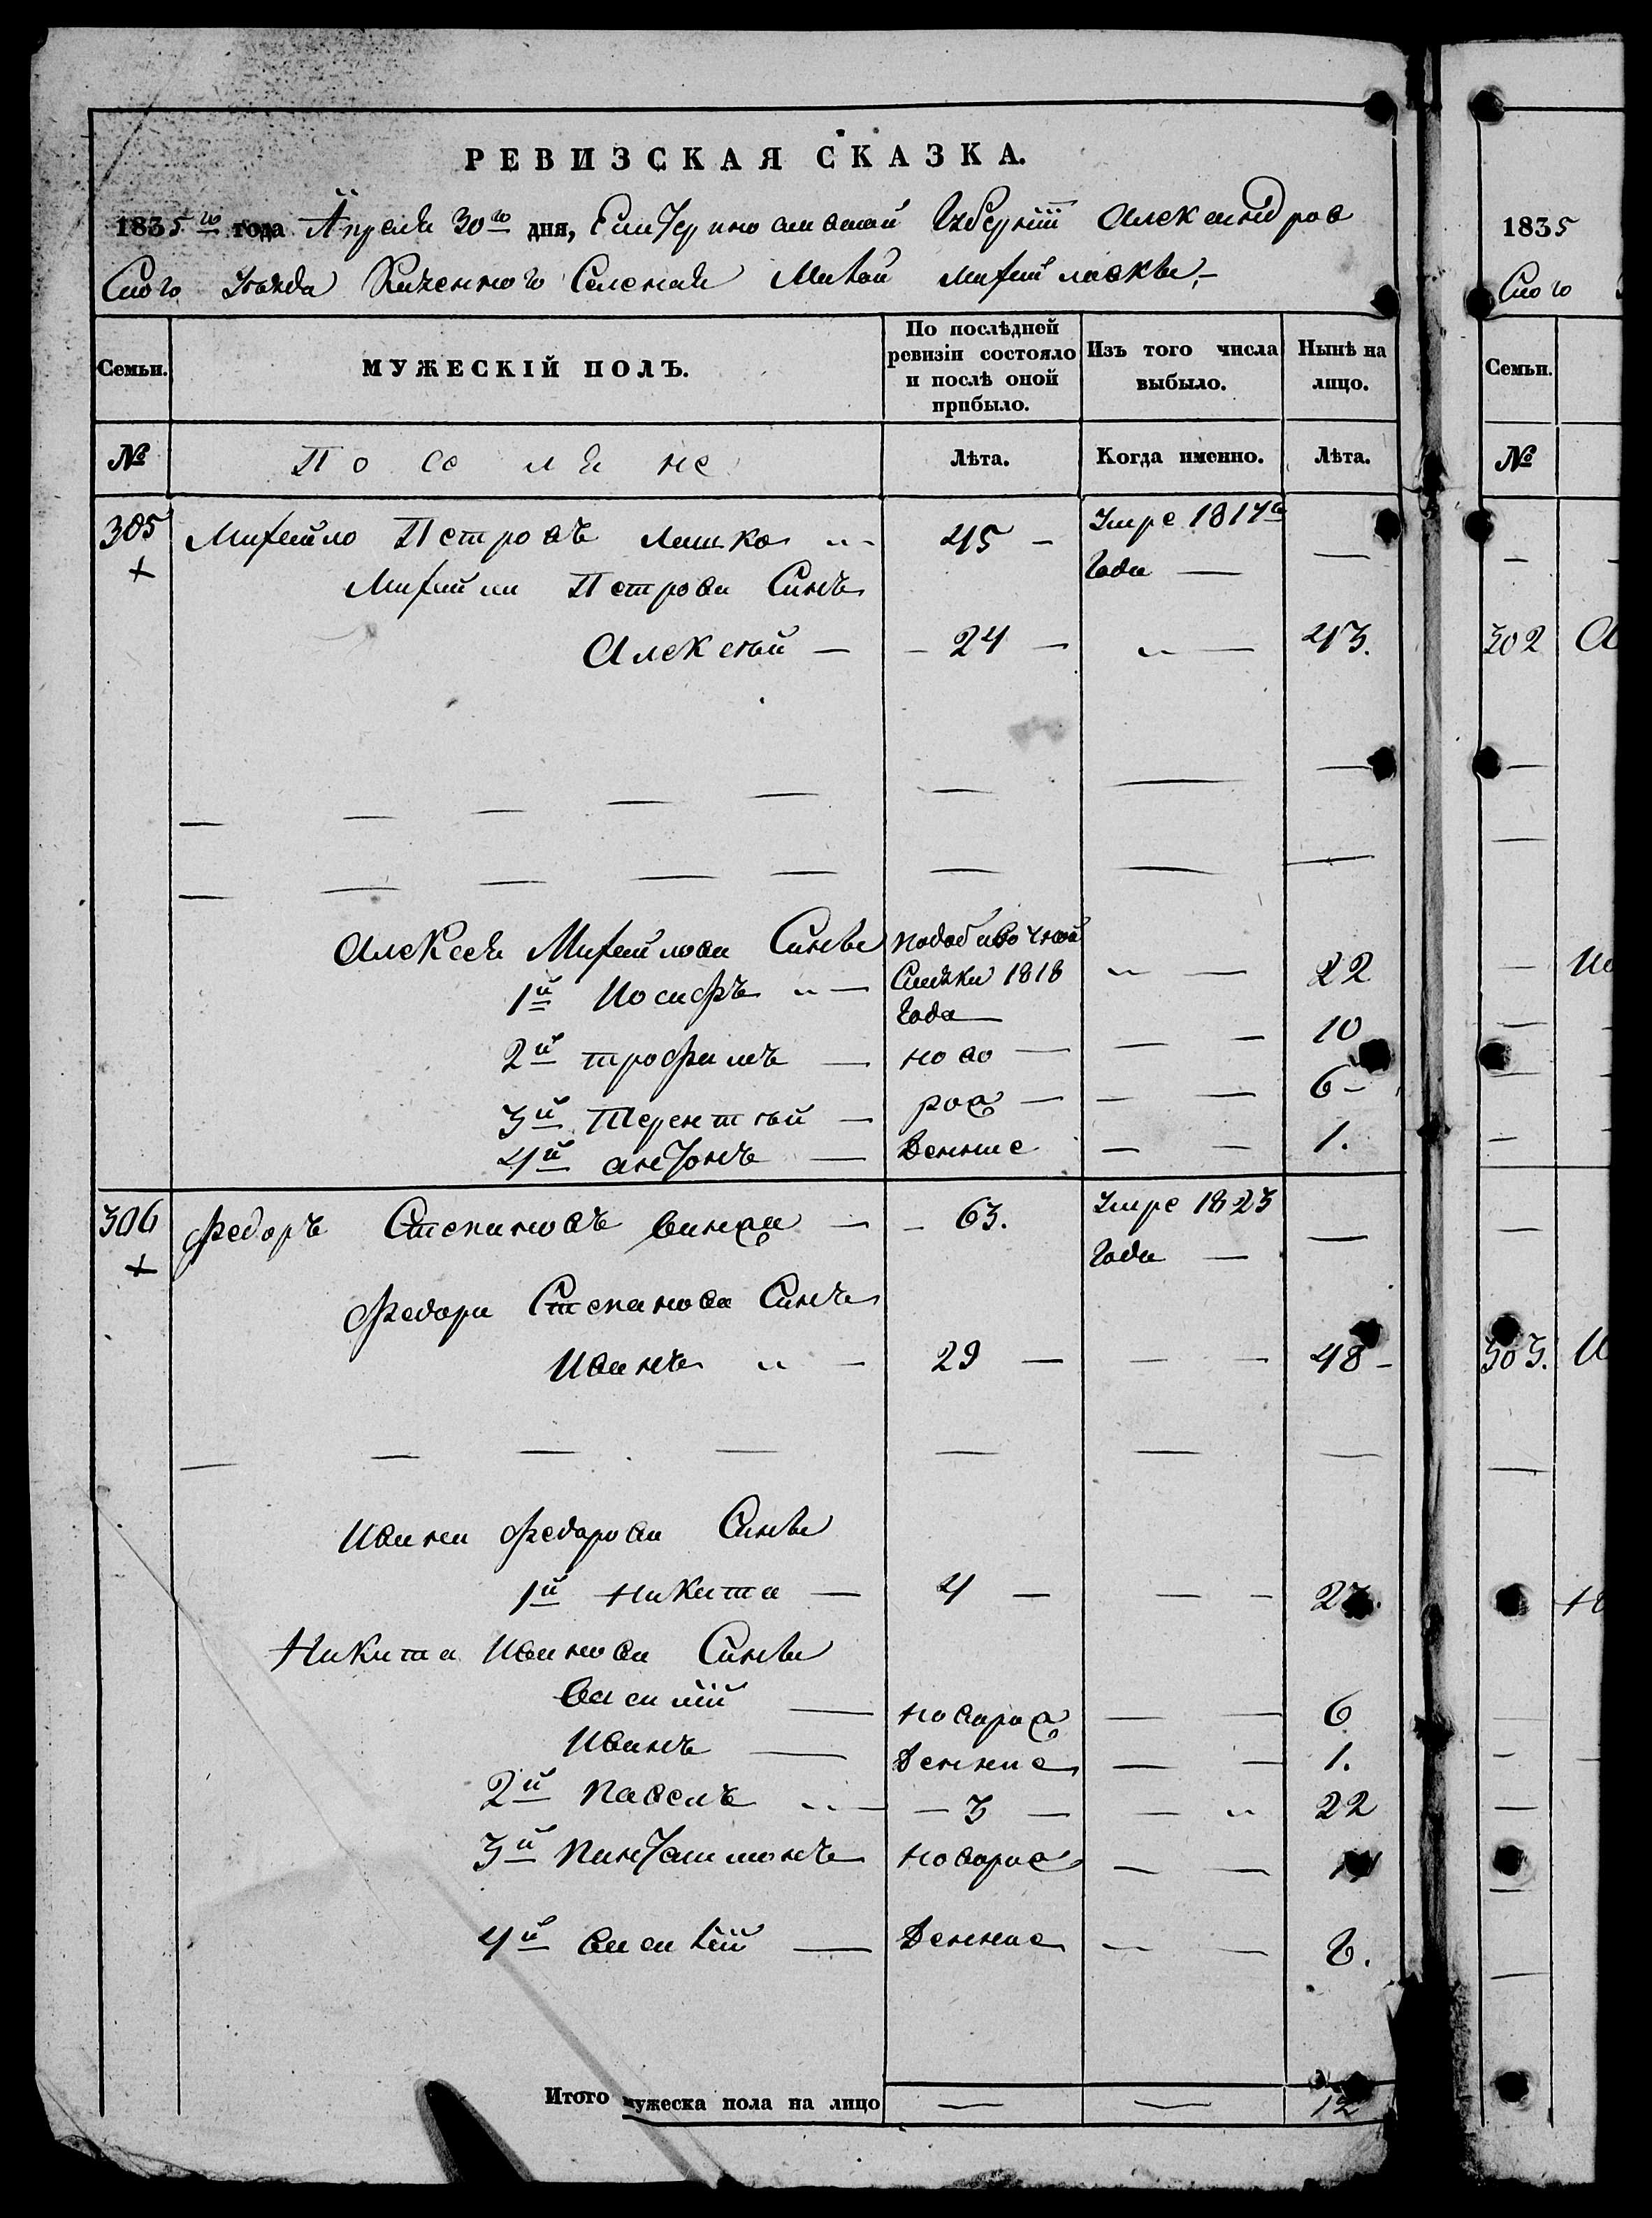 РЕВИЗСКАЯ СКАЗКА.
1835го года Апреля 30го дня, Екатеринославской Губернiи Александров
ского уезда Казенного Селения Малой Михайловки
Семьи. МУЖЕСКІЙ ПОЛЪ. По послѣдней ревизіи состояло и послѣ оной прибыло. Изъ того числа выбыло. Нынѣ на лицо.
№ Поселяне Лѣта. Когда именно. Лѣта.
305 Михайло Петровъ Лашко 45 — Умре 1817го Года —
Михайла Петрова Сынъ
Алексѣй — 24 — — 43.
Алексея Михайлова Сыны
1й Иосифъ — подобавочной Скаѣки 1818 Года — 22
2й трофимъ — ново — — 10
3й Терентѣй — рож — — 6
4й анѳонъ — денние — 1.
306 Федоръ Степановъ — 63. Умре 1823 Года —
Федора Степанова Сынъ
Иванъ — 29 — — 48
Ивана Федорова Сыны
1й Никита — 4 —
Никита Иванова Сыны
Василiй — новорож — 6
Иванъ — денние — 1.
2й Павелъ — 3 — 22
3й Панѳалимонъ новорож —
4й Василiй — денние — 8.
Итого мужеска пола на лицо — — 12
1835
Ского
Семьи.
№
302 А
303. И